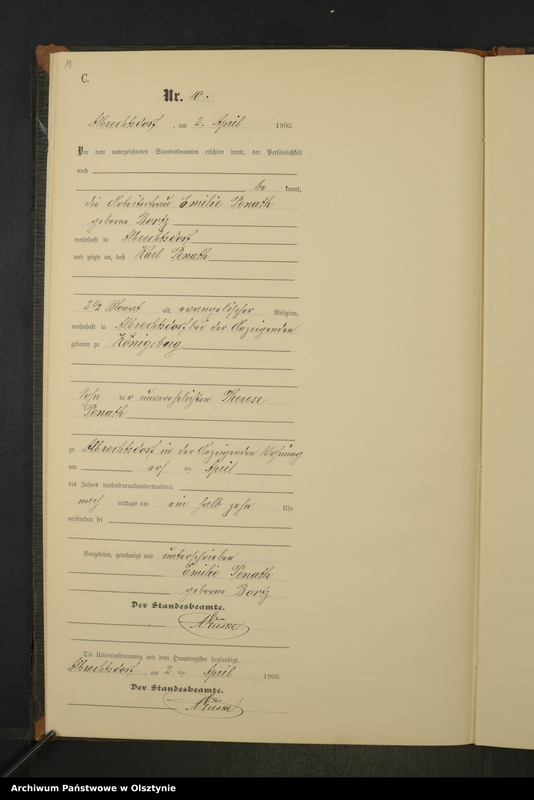 M
C.
Nr. 10.
Albrechtsdorf, am 2. April 1903.
Vor dem unterzeichneten Standesbeamten erschien heute, der Persönlichkeit
nach
be kannt,
die Arbeiterfrau Emilie Penath
geborne Bortz
wohnhaft in Albrechtsdorf
und zeigte an, daß Karl Penath
2 1/2 Monat alt, evangelischer Religion,
wohnhaft in Albrechtsdorf bei der Anzeigenden
geboren zu Königsberg
Sohn der unverehelichten Therese
Penath
zu Albrechtsdorf in der Anzeigenden Wohnung
am ten April
des Jahres tausendneunhundertunddrei
nach mittags um ein halb zehn Uhr
verstorben sei
Vorgelesen, genehmigt und unterschrieben
Emilie Penath
geborne Bortz
Der Standesbeamte.
Die Uebereinstimmung mit dem Hauptregister beglaubigt.
Albrechtsdorf, am 2 ten April 1903.
Der Standesbeamte.
Archiwum Państwowe w Olsztynie